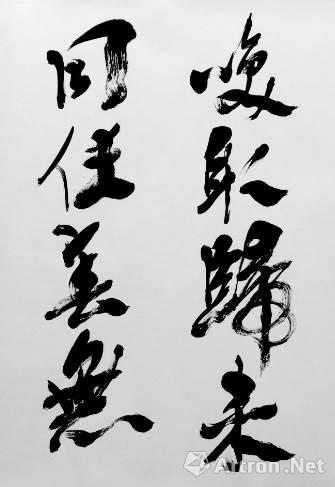 喚取歸来
同住春無
Artron.Net